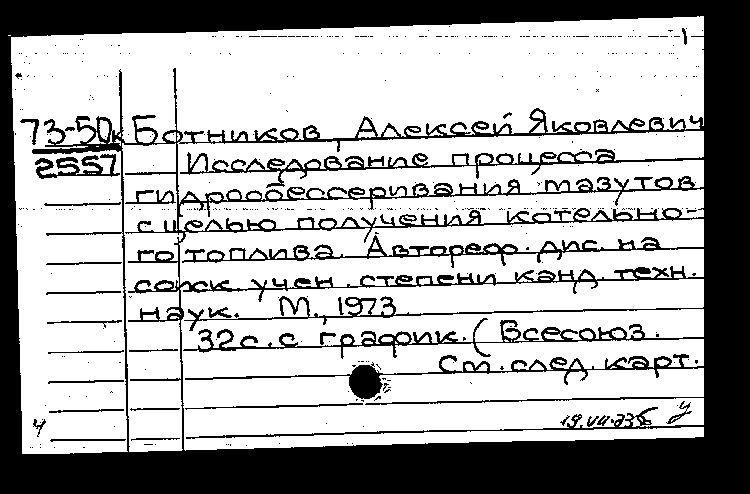 1
73-50к Ботников, Алексей Яковлевич
2557 Исследование процесса
гидрообессеривания мазутов
с целью получения котельно-
го топлива. Автореф. дис. на
соиск. учен. степени канд. техн.
наук. М., 1973
32 с. с график. (Всесоюз.
См. след. карт.